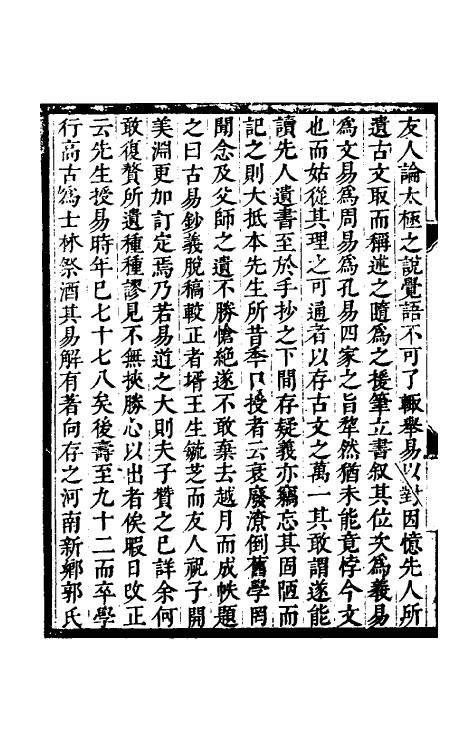 友人論太極之說覺語不可了輒舉易以對因憶先人所
遺古文取而稱述之隨爲之援筆立書叙其位次爲羲易
爲文易爲周易爲孔易四家之旨犂然猶未能竟悖今文
也而姑從其理之可通者以存古文之萬一其敢謂遂能
讀先人遺書至於手抄之下間存疑義亦竊忘其固陋而
記之則大抵本先生所昔年口授者云衰廢潦倒舊學罔
聞念及父師之遺不勝愴絕遂不敢棄去越月而成帙題
之曰古易鈔義脫稿較正者壻王生毓芝而友人祝子開
美淵更加訂定焉乃若易道之大則夫子贊之已詳余何
敢復贅所遺種種謬見不無挾勝心以出者俟暇日改正
云先生授易時年已七十七八矣後壽至九十二而卒學
行高古爲士林祭酒其易解有著向存之河南新鄉郭氏